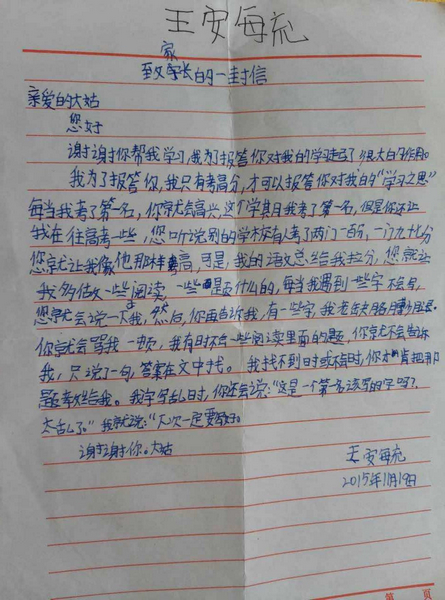 王安每充
致家长的一封信
亲爱的大姑
您好
谢谢你帮我学习,我为了报答你对我的学习起了很大的作用。
我为了报答你,我只有考高分,才可以报答你对我的"学习之恩"
每当我考了第一名,你就会高兴,这个学期月我考了第一名,但是你还让
我在往高考一些,您听说别的学校有人考了两门一百,一门九十七分
您就让我像他那样考高,可是,我的语文总给我拉分,您就让
我多做一些阅读,一些题什么的,每当我遇到一些字不会写,
您就会说一下我,然后,你再告诉我,有一些字,我老缺胳膊少腿。
你就会骂我一顿,我有时不会一些阅读里面的题,你就不会告诉
我,只说了一句,答案在文中找。我找不到时或不会时,你才肯把那
题教给我。我字写乱时,你还会说:"这是一个第一名该写的字吗?
太乱了。"我就说:"下次一定要做好。
谢谢你。大姑
王安每充
2015年11月19日
第 页